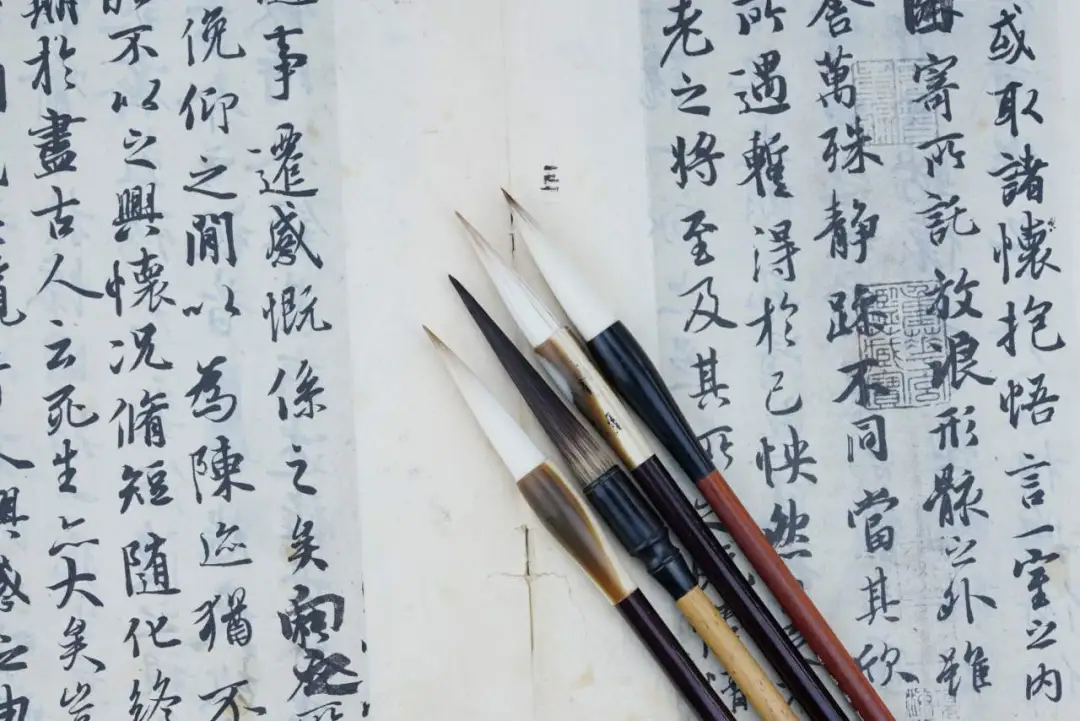 或取諸懷抱悟言一室之内
因寄所託放浪形骸之外雖
舍萬殊静躁不同當其欣
所遇蹔得於己怏然
老之將至及其所
事遷感慨係之矣向之所
俛仰之閒以為陳迹猶不
能不以之興懷况脩短随化終
期於盡古人云死生亦大矣豈
人興感之由